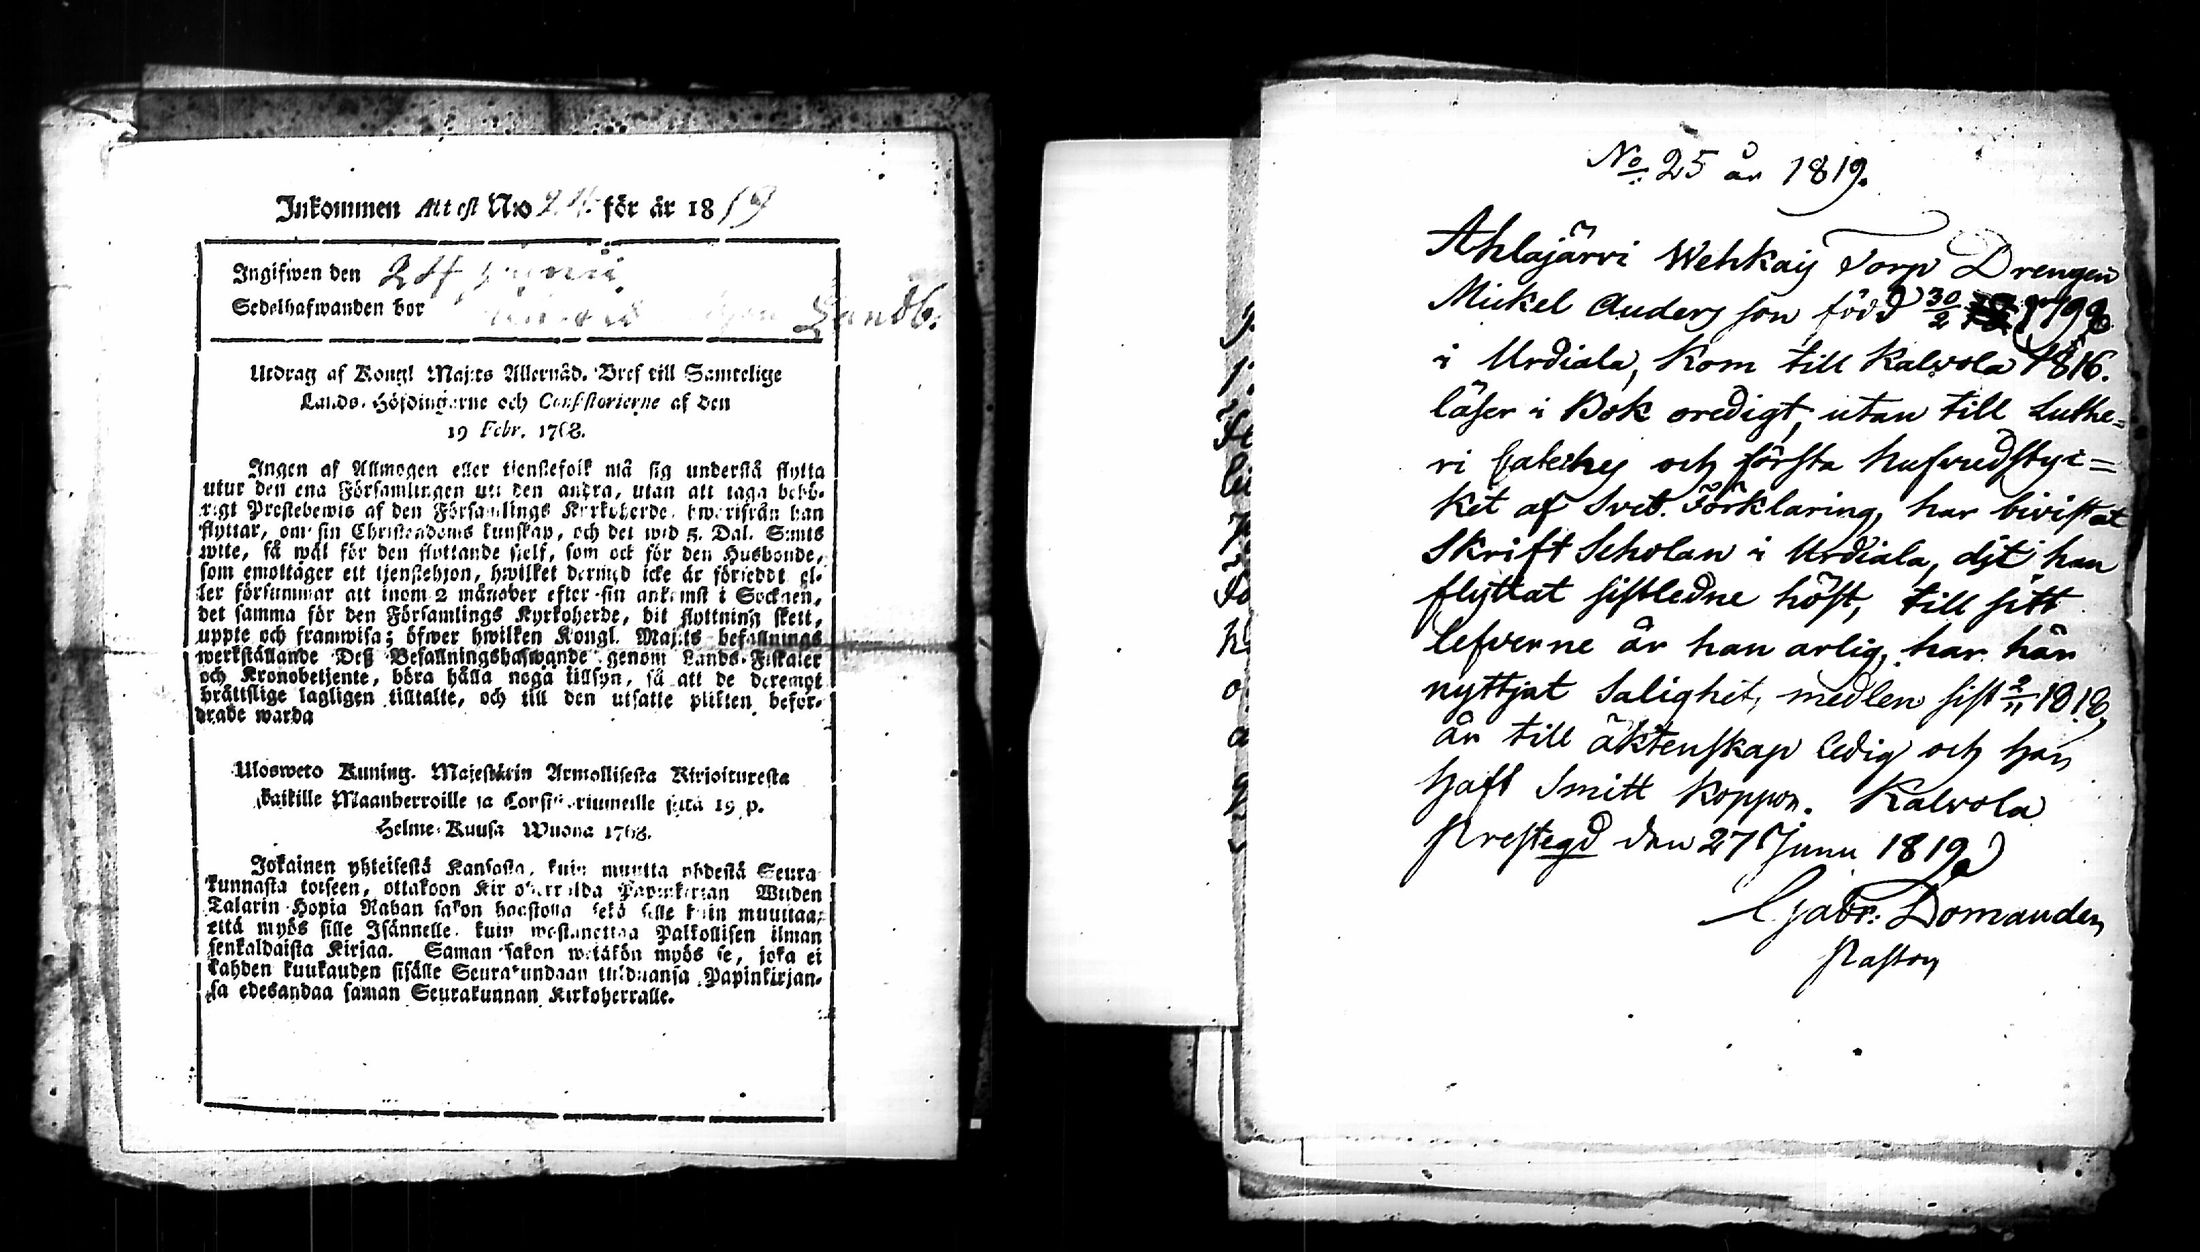 Inkommen Attest N:o 24 för år 1819
Ingifwen den 24 Junii
Sedelhafwanden bor Landb.
Utdrag af Kongl Maj:ts Allernåd. Bref till Samtelige
Lands-Höfdingarne och Consistorierne af den
19 Febr. 1768.
Ingen af Allmogen eller tienstefolk må sig understå flytta
utur den ena Församlingen uti den andra, utan att taga behö-
rigt Prestebewis af den Församlings Kyrkoherde, hwarifrån han
flyttar, om sin Christendoms kunskap, och det wid 5. Dal. S:mts
wite, så wäl för den flyttande sielf, som ock för den Husbonde,
som emottager ett tjenstehjon, hwilket dermed icke är förseddt el-
ler försummar att inom 2 månader efter sin ankomst i Socknen,
det samma för den Församlings Kyrkoherde, dit flyttning skett,
uppte och framwisa; öfwer hwilken Kongl. Maj:ts befallnings
werkställande Deß Befallningshafwande genom Lands-Fiskaler
och Kronobetjente, böra hålla noga tillsyn, så att de deremot
brättslige lagligen tilltalte, och till den utsatte plikten befor-
drade warda
Ulosweto Kuning. Majestärin Armollisesta Kirjoituresta
kaikille Maanherroille ja Consistoriumeille siitä 19 p.
Helme-Kuusa Wuona 1768.
Jokainen yhteisestä Kansasta, kuin muutta yhdestä Seura
kunnasta toiseen, ottakoon Kirkoherralda Papinkirjan Wiiden
Talarin Hopia Rahan sakon haastolla sekä sille kuin muuttaa,
että myös sille Isännelle, kuin wastanottaa Palkollisen ilman
senkaldaista Kirjaa. Saman sakon wetäkön myös se, joka ei
kahden kuukauden sisälle Seurakundaan tulduansa Papinkirjan-
sa edesandaa saman Seurakunnan Kirkoherralle.
No. 25 år 1819.
Ahlajärvi Wehkaij Torp Drengen
Mickel Anders son född 30/2 179
i Urdiala, kom till Kalvola 1816.
läser i Bok oredigt, utan till Luthe=
ri Cateches och första hufvudstyc=
ket af Sveb. Förklaring, har bivistat
Skrift Scholan i Urdiala, dijt han
flyttat sistledne höst, till sitt
lefverne är han arlig, har här
nyttjat Salighet, medlen sist 2/11 1818,
är till äktenskap ledig och han
haft Smitt koppor. Kalvola
Prestegd den 27 Junii 1819.
Gabr: Domander
Pastor